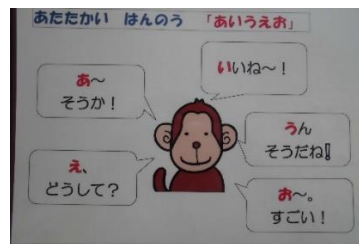 あたたかい はんのう 「あいうえお」
あ～
そうか！
いいね～！
うん
そうだね!!
え、
どうして？
お～。
すごい！